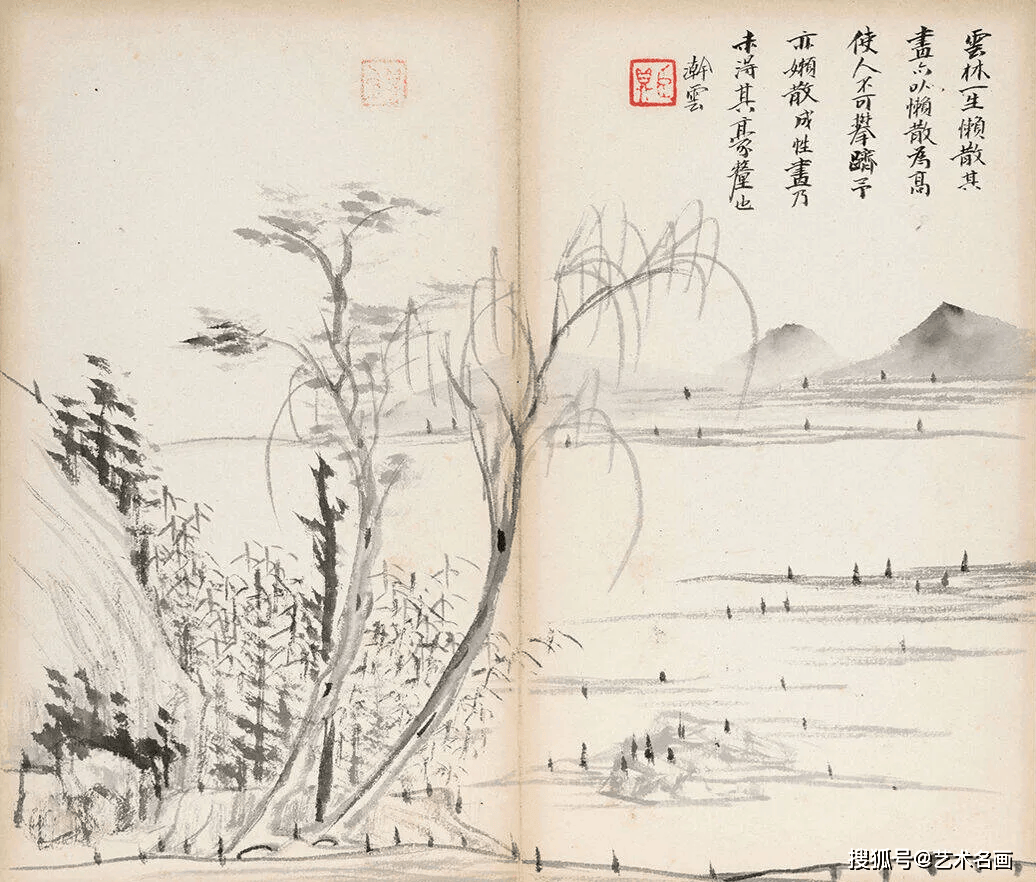 雲林一生懶散其
畫亦以懶散為高
使人不可攀躋予
亦嬾散成性畫乃
未得其豪釐也
澣雲
搜狐号@艺术名画